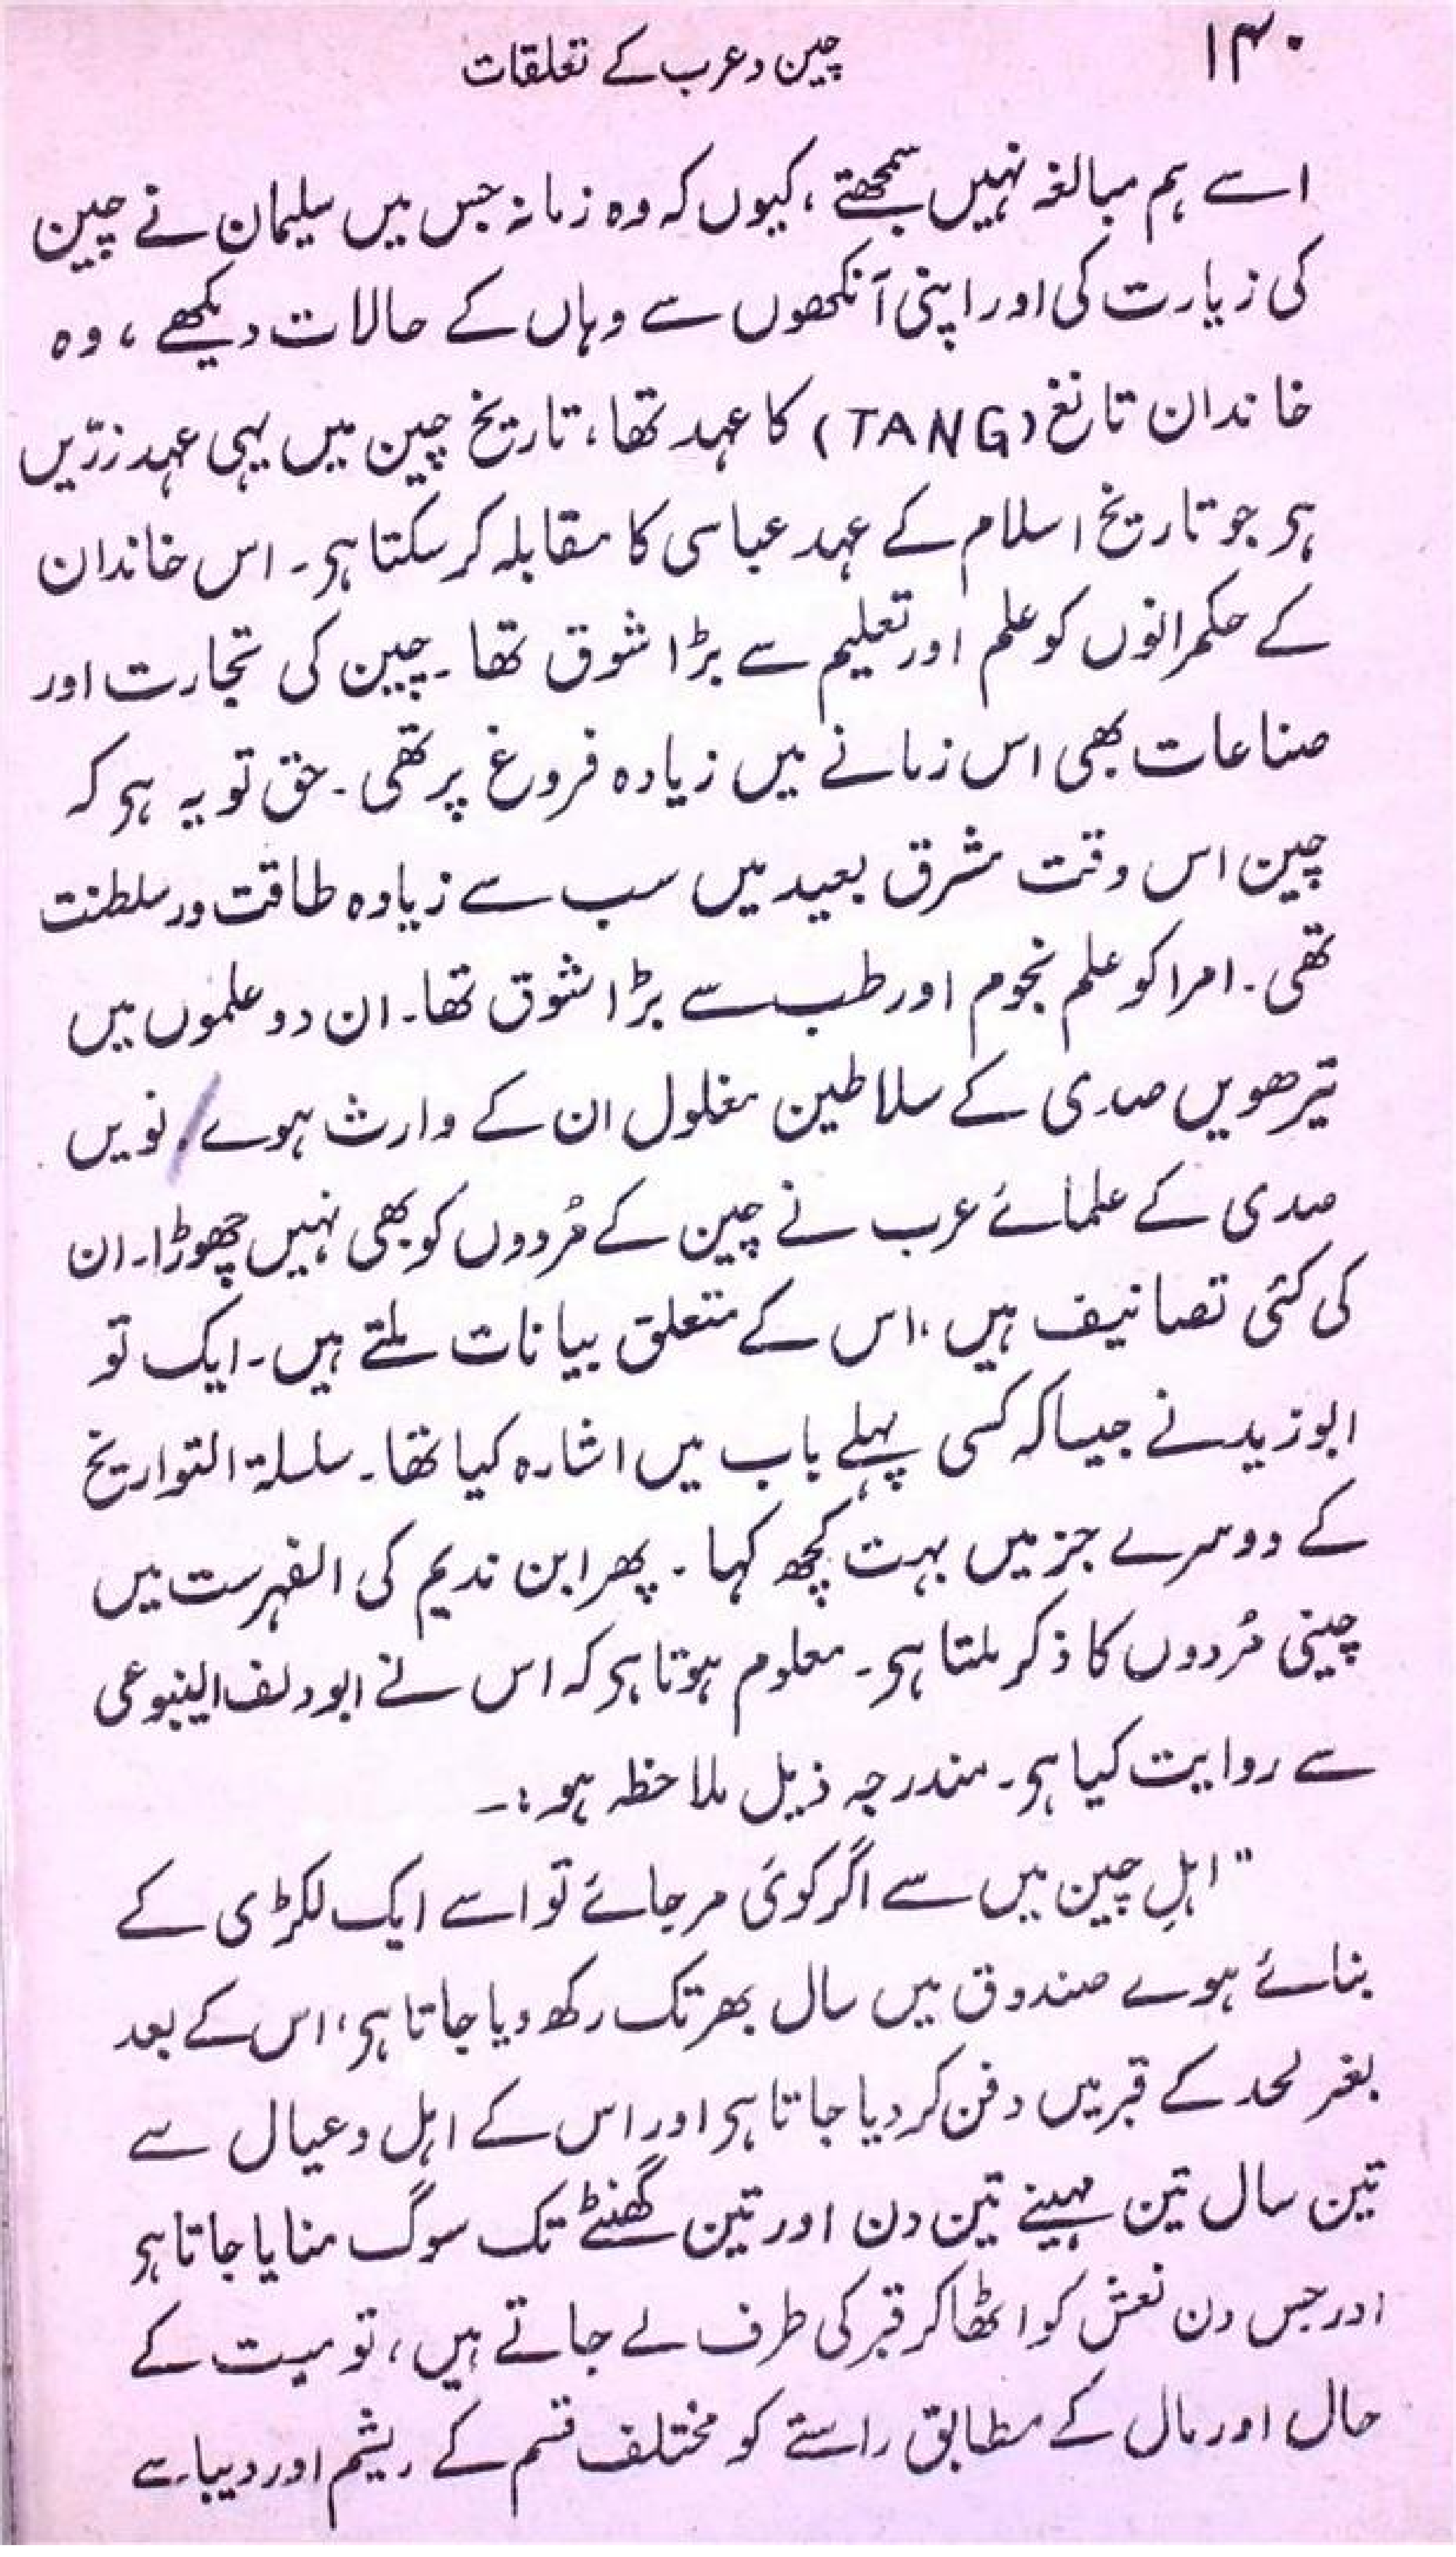 ۱۴۰
چین و عرب کے تعلقات
اسے ہم مبالغہ نہیں سمجھتے، کیوں کہ وہ زمانہ جس میں سلیمان نے چین
کی زیارت کی اور اپنی آنکھوں سے وہاں کے حالات دیکھے، وہ
خاندان تانغ (TANG) کا عہد تھا، تاریخ چین میں یہی عہد زرّیں
ہی جو تاریخ اسلام کے عہد عباسی کا مقابلہ کر سکتا ہی۔ اس خاندان
کے حکمرانوں کو علم اور تعلیم سے بڑا شوق تھا۔ چین کی تجارت اور
صناعات بھی اس زمانے میں زیادہ فروغ پر تھی۔ حق تو یہ ہی کہ
چین اس وقت مشرق بعید میں سب سے زیادہ طاقت ور سلطنت
تھی۔ امرا کو علم نجوم اور طب سے بڑا شوق تھا۔ ان دو علموں میں
تیرھویں صدی کے سلاطین مغلول ان کے وارث ہوے۔ نویں
صدی کے علمائے عرب نے چین کے مُردوں کو بھی نہیں چھوڑا۔ ان
کی کئی تصانیف ہیں، اس کے متعلق بیانات ملتے ہیں۔ ایک تو
ابوزید نے جیسا کہ کسی پہلے باب میں اشارہ کیا تھا۔ سلسلۃ التواریخ
کے دوسرے جز میں بہت کچھ کہا۔ پھر ابن ندیم کی الفہرست میں
چینی مُردوں کا ذکر ملتا ہی۔ معلوم ہوتا ہی کہ اس نے ابودلف الینبوعی
سے روایت کیا ہی۔ مندرجہ ذیل ملاحظہ ہو:۔
"اہلِ چین میں سے اگر کوئی مر جائے تو اسے ایک لکڑی کے
بنائے ہوے صندوق میں سال بھر تک رکھ دیا جاتا ہی، اس کے بعد
بغیر لحد کے قبر میں دفن کر دیا جاتا ہی اور اس کے اہل و عیال سے
تین سال تین مہینے تین دن اور تین گھنٹے تک سوگ منایا جاتا ہی
اور جس دن نعش کو اٹھا کر قبر کی طرف لے جاتے ہیں، تو میت کے
حال اور مال کے مطابق راستے کو مختلف قسم کے ریشم اور دیبا سے